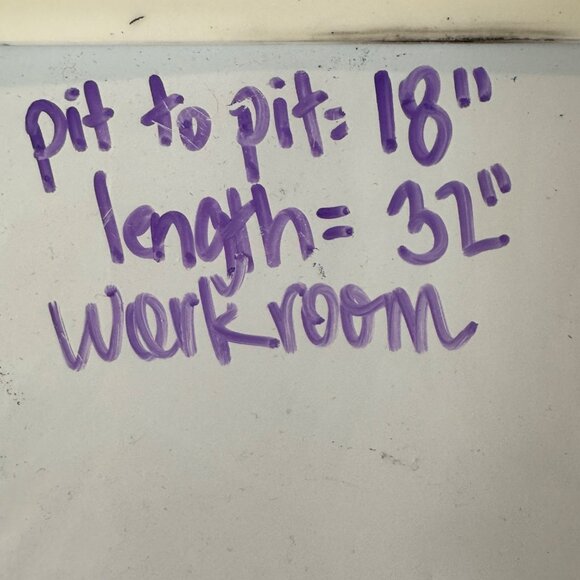 pit to pit= 18"
length= 32"
workroom